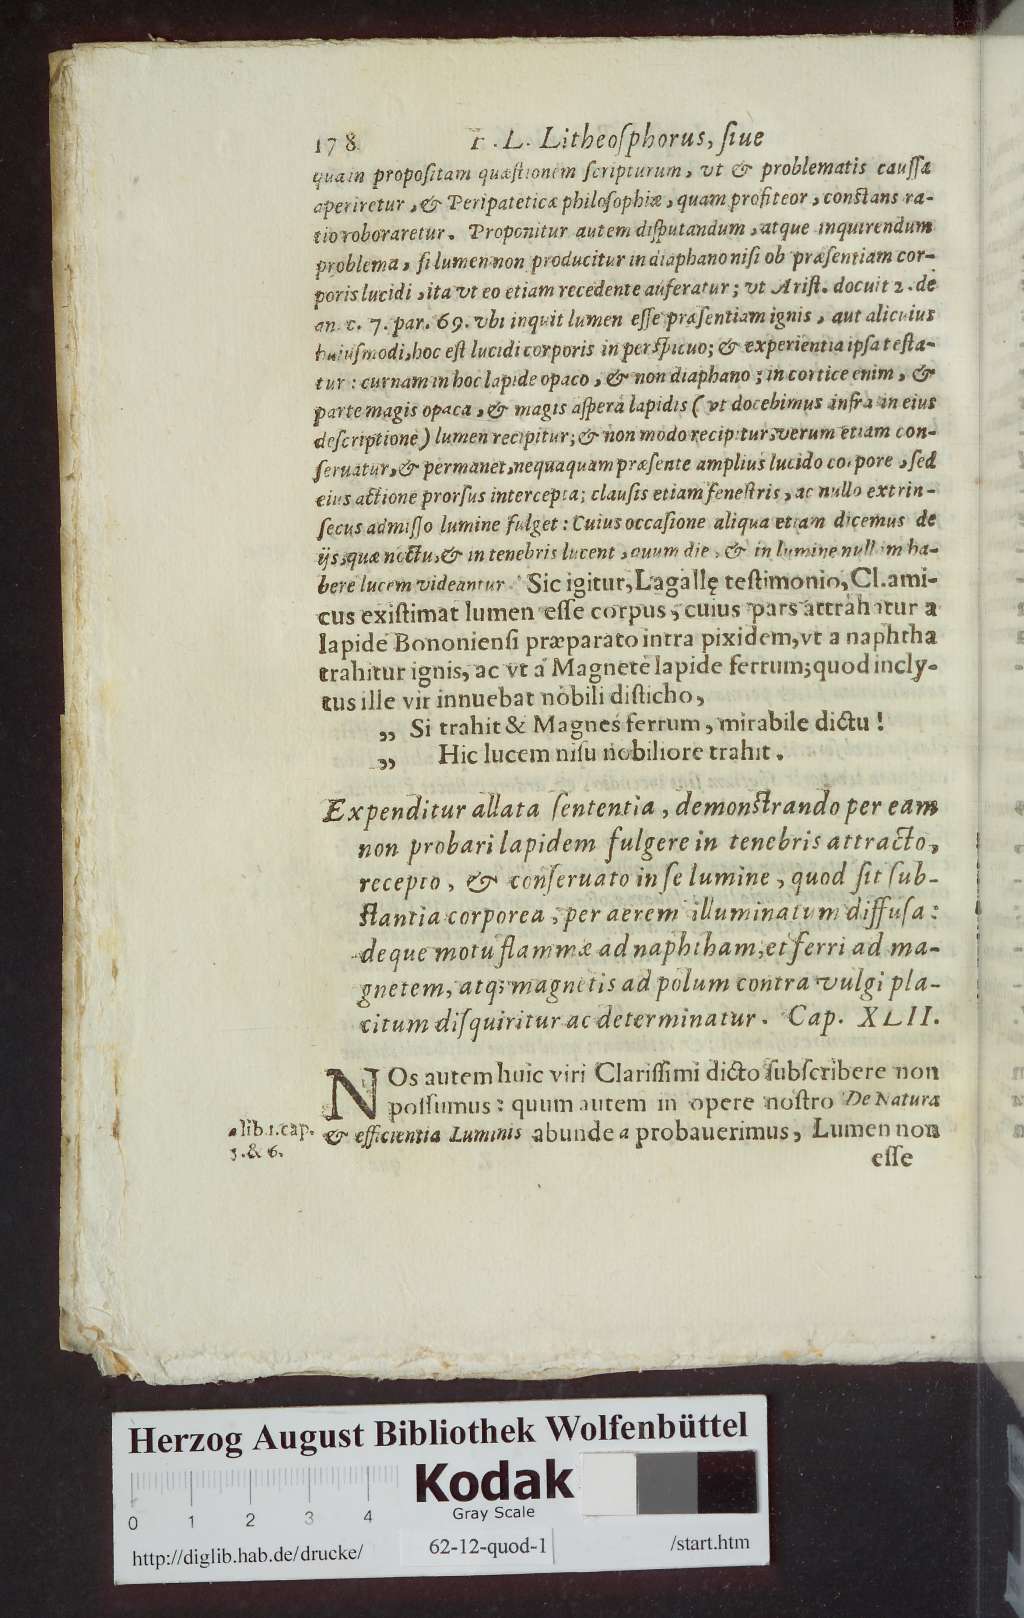 178 F. L. Litheoſphorus, ſiue
quam propoſitam quæſtionem ſcripturum, vt & problematis cauſſa
aperiretur, & Peripateticæ philoſophiæ, quam profiteor, conſtans ra-
tio roboraretur. Proponitur autem diſputandum, atque inquirendum
problema, ſi lumen non producitur in diaphano niſi ob præſentiam cor-
poris lucidi, ita vt eo etiam recedente auferatur; vt Ariſt. docuit 2. de
an. c. 7. par. 69. vbi inquit lumen eſſe præſentiam ignis, aut alicuius
huiuſmodi, hoc eſt lucidi corporis in perſpicuo; & experientia ipſa teſta-
tur: cur nam in hoc lapide opaco, & non diaphano; in cortice enim, &
parte magis opaca, & magis aſpera lapidis (vt docebimus infra in eius
deſcriptione) lumen recipitur; & non modo recipitur, verum etiam con-
ſeruatur, & permanet, nequaquam præſente amplius lucido corpore, ſed
eius actione prorſus intercepta; clauſis etiam feneſtris, ac nullo extrin-
ſecus admiſſo lumine fulget: Cuius occaſione aliqua etiam dicemus de
ijs, quæ noctu, & in tenebris lucent, quum die, & in lumine nullam ha-
bere lucem videantur. Sic igitur, Lagallę teſtimonio, Cl. ami-
cus exiſtimat lumen eſſe corpus, cuius pars attrahatur a
lapide Bononienſi præparato intra pixidem, vt a naphtha
trahitur ignis, ac vt a Magnete lapide ferrum; quod incly-
tus ille vir innuebat nobili diſticho,
„ Si trahit & Magnes ferrum, mirabile dictu!
„ Hic lucem niſu nobiliore trahit.
Expenditur allata ſententia, demonſtrando per eam
non probari lapidem fulgere in tenebris attracto,
recepto, & conſeruato in ſe lumine, quod ſit ſub-
ſtantia corporea, per aerem illuminatum diffuſa:
deque motu flammæ ad naphtham, et ferri ad ma-
gnetem, atq; magnetis ad polum contra vulgi pla-
citum diſquiritur ac determinatur. Cap. XLII.
NOs autem huic viri Clariſſimi dicto ſubſcribere non
poſſumus: quum autem in opere noſtro De Natura
a lib. 1. cap. & efficientia Luminis abunde a probauerimus, Lumen non
3. & 6.
eſſe
Herzog August Bibliothek Wolfenbüttel
Kodak
Gray Scale
0 1 2 3 4
http://diglib.hab.de/drucke/ 62-12-quod-1 /start.htm